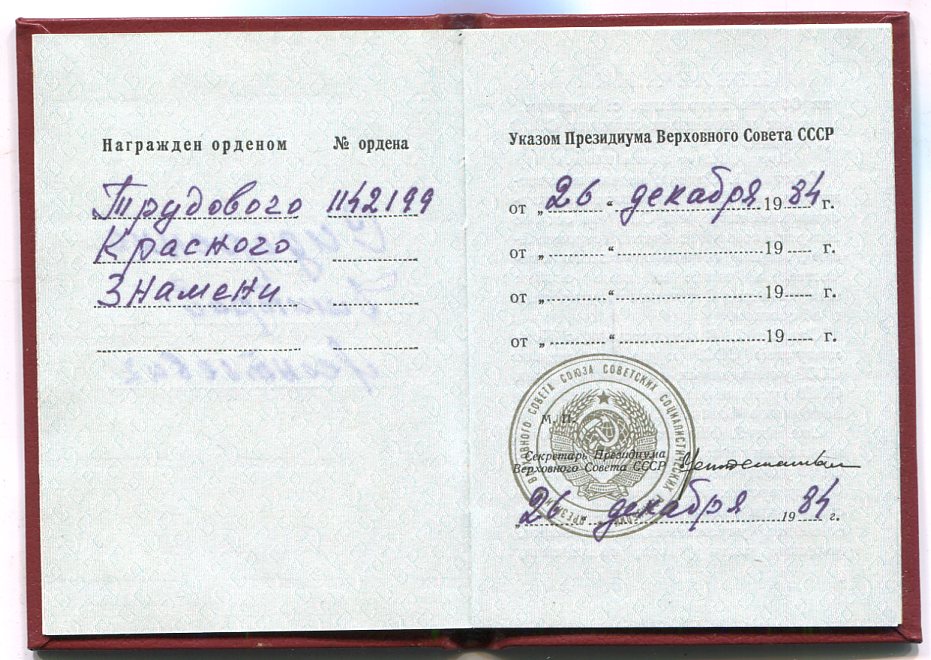 Награжден орденом № ордена
Трудового 1142199
Красного
Знамени
Указом Президиума Верховного Совета СССР
от „26“ декабря 1984 г.
от „ “ 19 г.
от „ “ 19 г.
от „ “ 19 г.
М. П.
ВЕРХОВНОГО СОВЕТА СОЮЗА СОВЕТСКИХ СОЦИАЛИСТИЧЕСКИХ
Секретарь Президиума
Верховного Совета СССР
„26 декабря 1984 г.